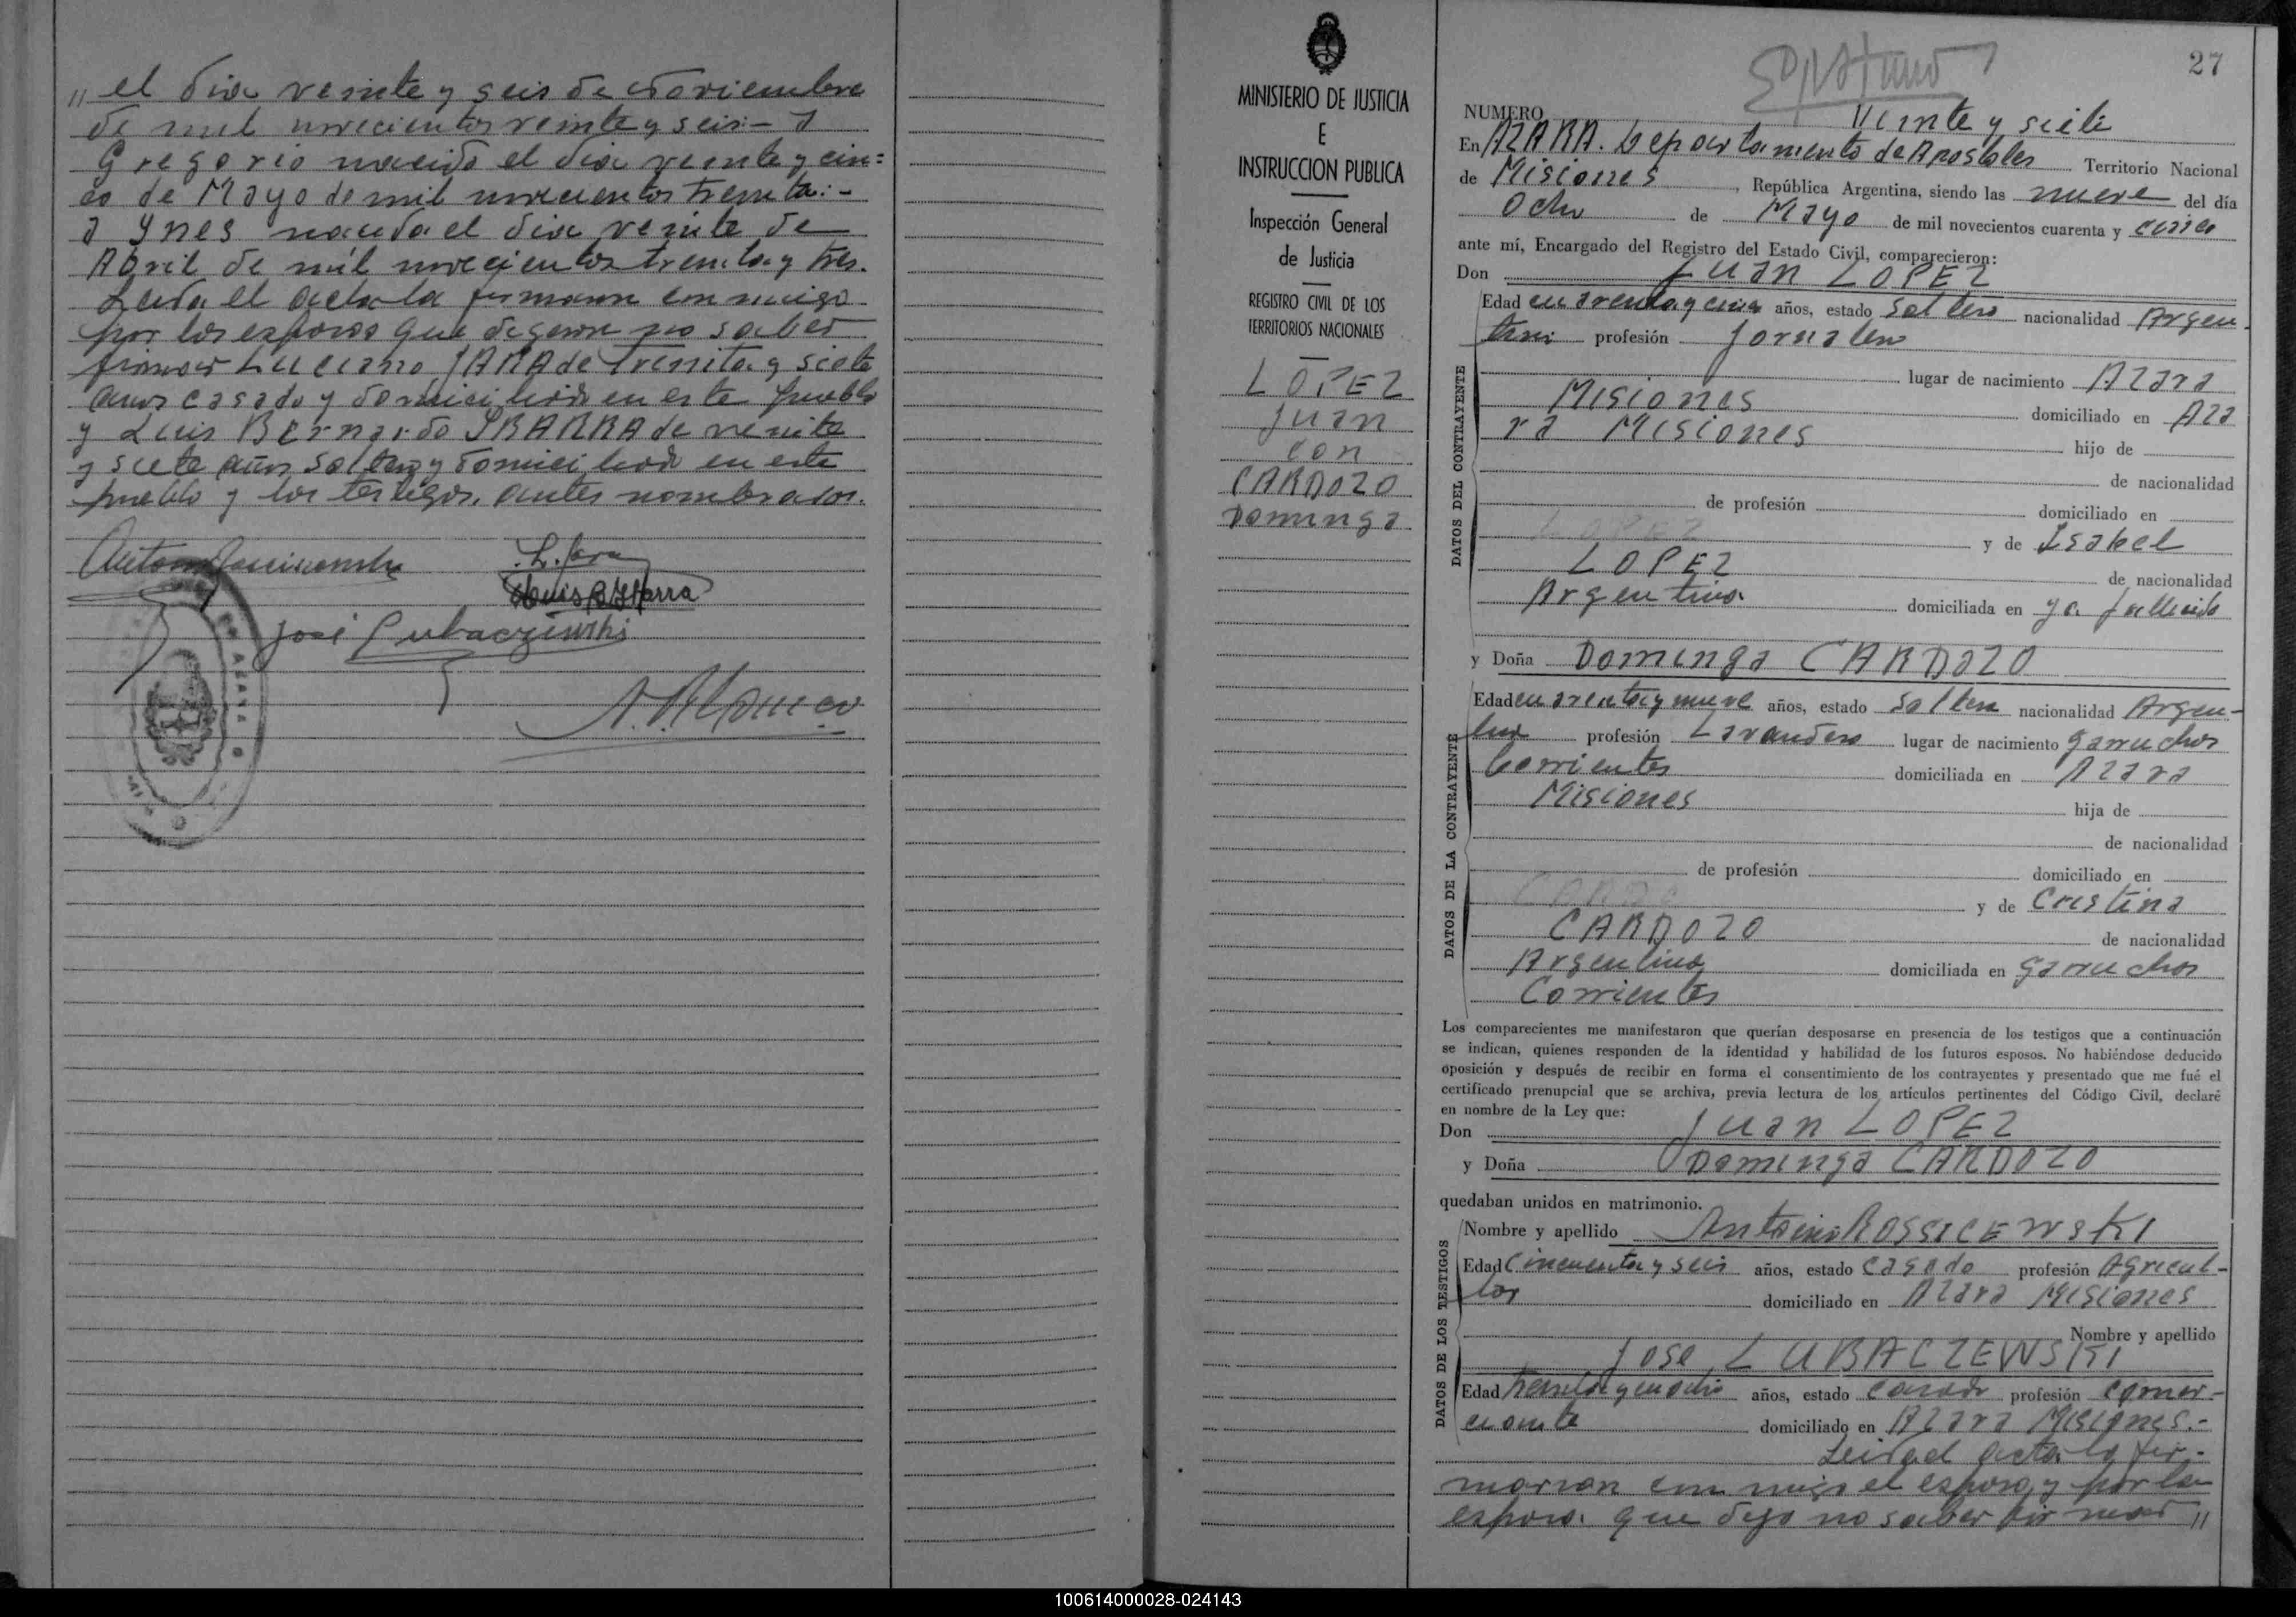 " el dia veinte y seis de Noviembre
de mil novecientos veinte y seis:- a
Gregorio nacido el dia veinte y cin=
co de Mayo de mil novecientos treinta:-
a Ynes nacida el dia veinte de
Abril de mil novecientos treinta y tres.
Leida el acta la firmaron con migo
por los esposos que digeron no saber
firmar Luciano JARA de treinta y siete
años casado y domiciliado en este pueblo
y Luis Bernardo YBARRA de veinte
y siete años soltero y domiciliado en este
pueblo y los testigos, antes nombrados.
L. Jara
Luis B Ybarra
José Lubaczewski
AZARA
MINISTERIO DE JUSTICIA
E
INSTRUCCION PUBLICA
Inspección General
de Justicia
REGISTRO CIVIL DE LOS
TERRITORIOS NACIONALES
LOPEZ
Juan
con
CARDOZO
Dominga
27
NUMERO Veinte y siete
En AZARA. Departamento de Apostoles Territorio Nacional
de Misiones, República Argentina, siendo las nueve del día
Ocho de Mayo de mil novecientos cuarenta y cinco
ante mí, Encargado del Registro del Estado Civil, comparecieron:
Don Juan LOPEZ
DATOS DEL CONTRAYENTE
Edad cuarenta y cinco años, estado Soltero nacionalidad Argen-
tino profesión Jornalero
lugar de nacimiento Azara
Misiones domiciliado en Aza
ra Misiones hijo de
de nacionalidad
de profesión domiciliado en
LOPEZ y de Isabel
LOPEZ de nacionalidad
Argentina domiciliada en ya fallecida
y Doña Dominga CARDOZO
DATOS DE LA CONTRAYENTE
Edad cuarenta y nueve años, estado Soltera nacionalidad Argen-
tina profesión Lavandera lugar de nacimiento Garruchos
Corrientes domiciliada en Azara
Misiones hija de
de nacionalidad
de profesión domiciliado en
y de Cristina
CARDOZO de nacionalidad
Argentina domiciliada en Garruchos
Corrientes
Los comparecientes me manifestaron que querían desposarse en presencia de los testigos que a continuación
se indican, quienes responden de la identidad y habilidad de los futuros esposos. No habiéndose deducido
oposición y después de recibir en forma el consentimiento de los contrayentes y presentado que me fué el
certificado prenupcial que se archiva, previa lectura de los artículos pertinentes del Código Civil, declaré
en nombre de la Ley que:
Don Juan LOPEZ
y Doña Dominga CARDOZO
quedaban unidos en matrimonio.
DATOS DE LOS TESTIGOS
Nombre y apellido Antonio ROSSICEWSKI
Edad Cincuenta y seis años, estado Casado profesión Agricul-
tor domiciliado en Azara Misiones
Nombre y apellido
Jose LUBACZEWSKI
Edad treinta y ocho años, estado casado profesión Comer-
ciante domiciliado en Azara Misiones.-
Leida el acta la fir-
marron con migo el esposo, y por la
esposa que dijo no saber firmar "
100614000028-024143